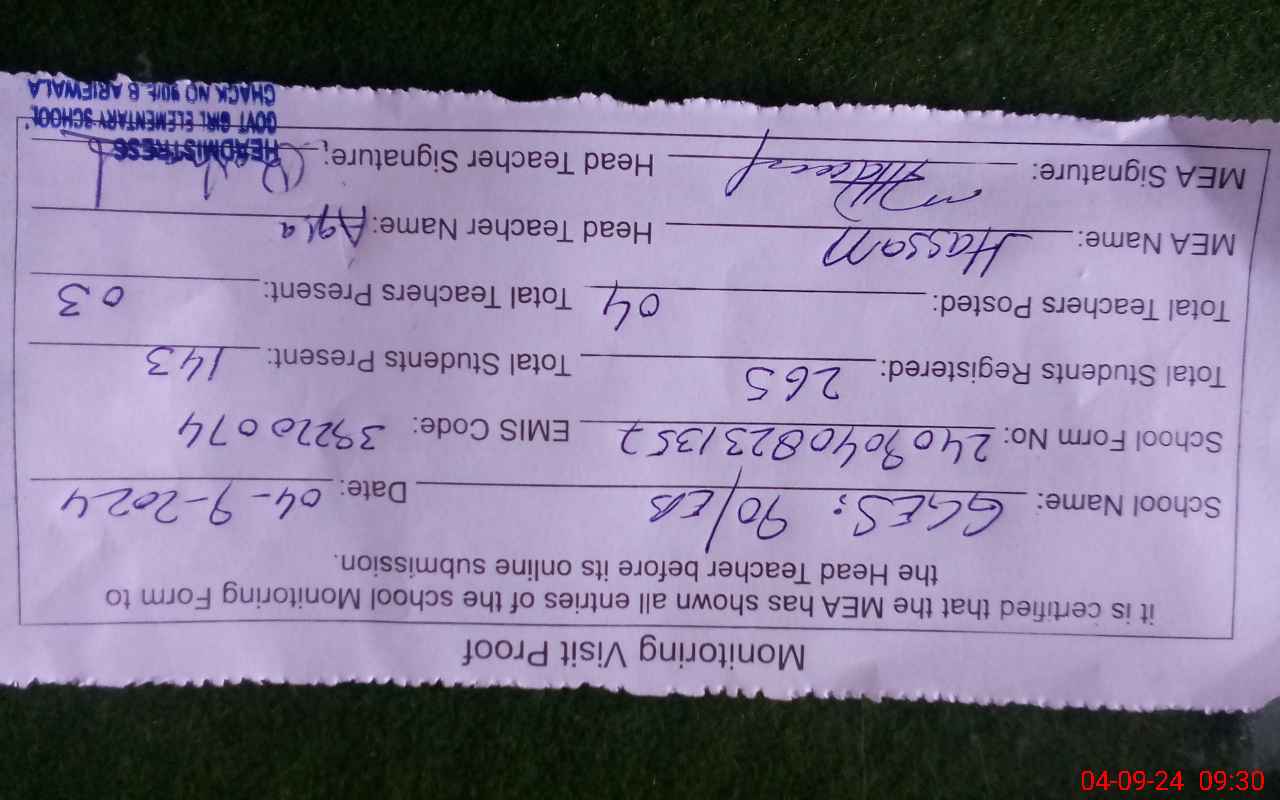 Monitoring Visit Proof
it is certified that the MEA has shown all entries of the school Monitoring Form to
the Head Teacher before its online submission.
School Name: GGES: 90/EB Date: 04-9-2024
School Form No: 24090408231357 EMIS Code: 39220074
Total Students Registered: 265 Total Students Present: 143
Total Teachers Posted: 04 Total Teachers Present: 03
MEA Name: Hassam Head Teacher Name: Aqsa
MEA Signature: Head Teacher Signature:
HEADMISTRESS
GOVT GIRL ELEMENTARY SCHOOL
CHACK NO 90/E B ARIFWALA
04-09-24 09:30